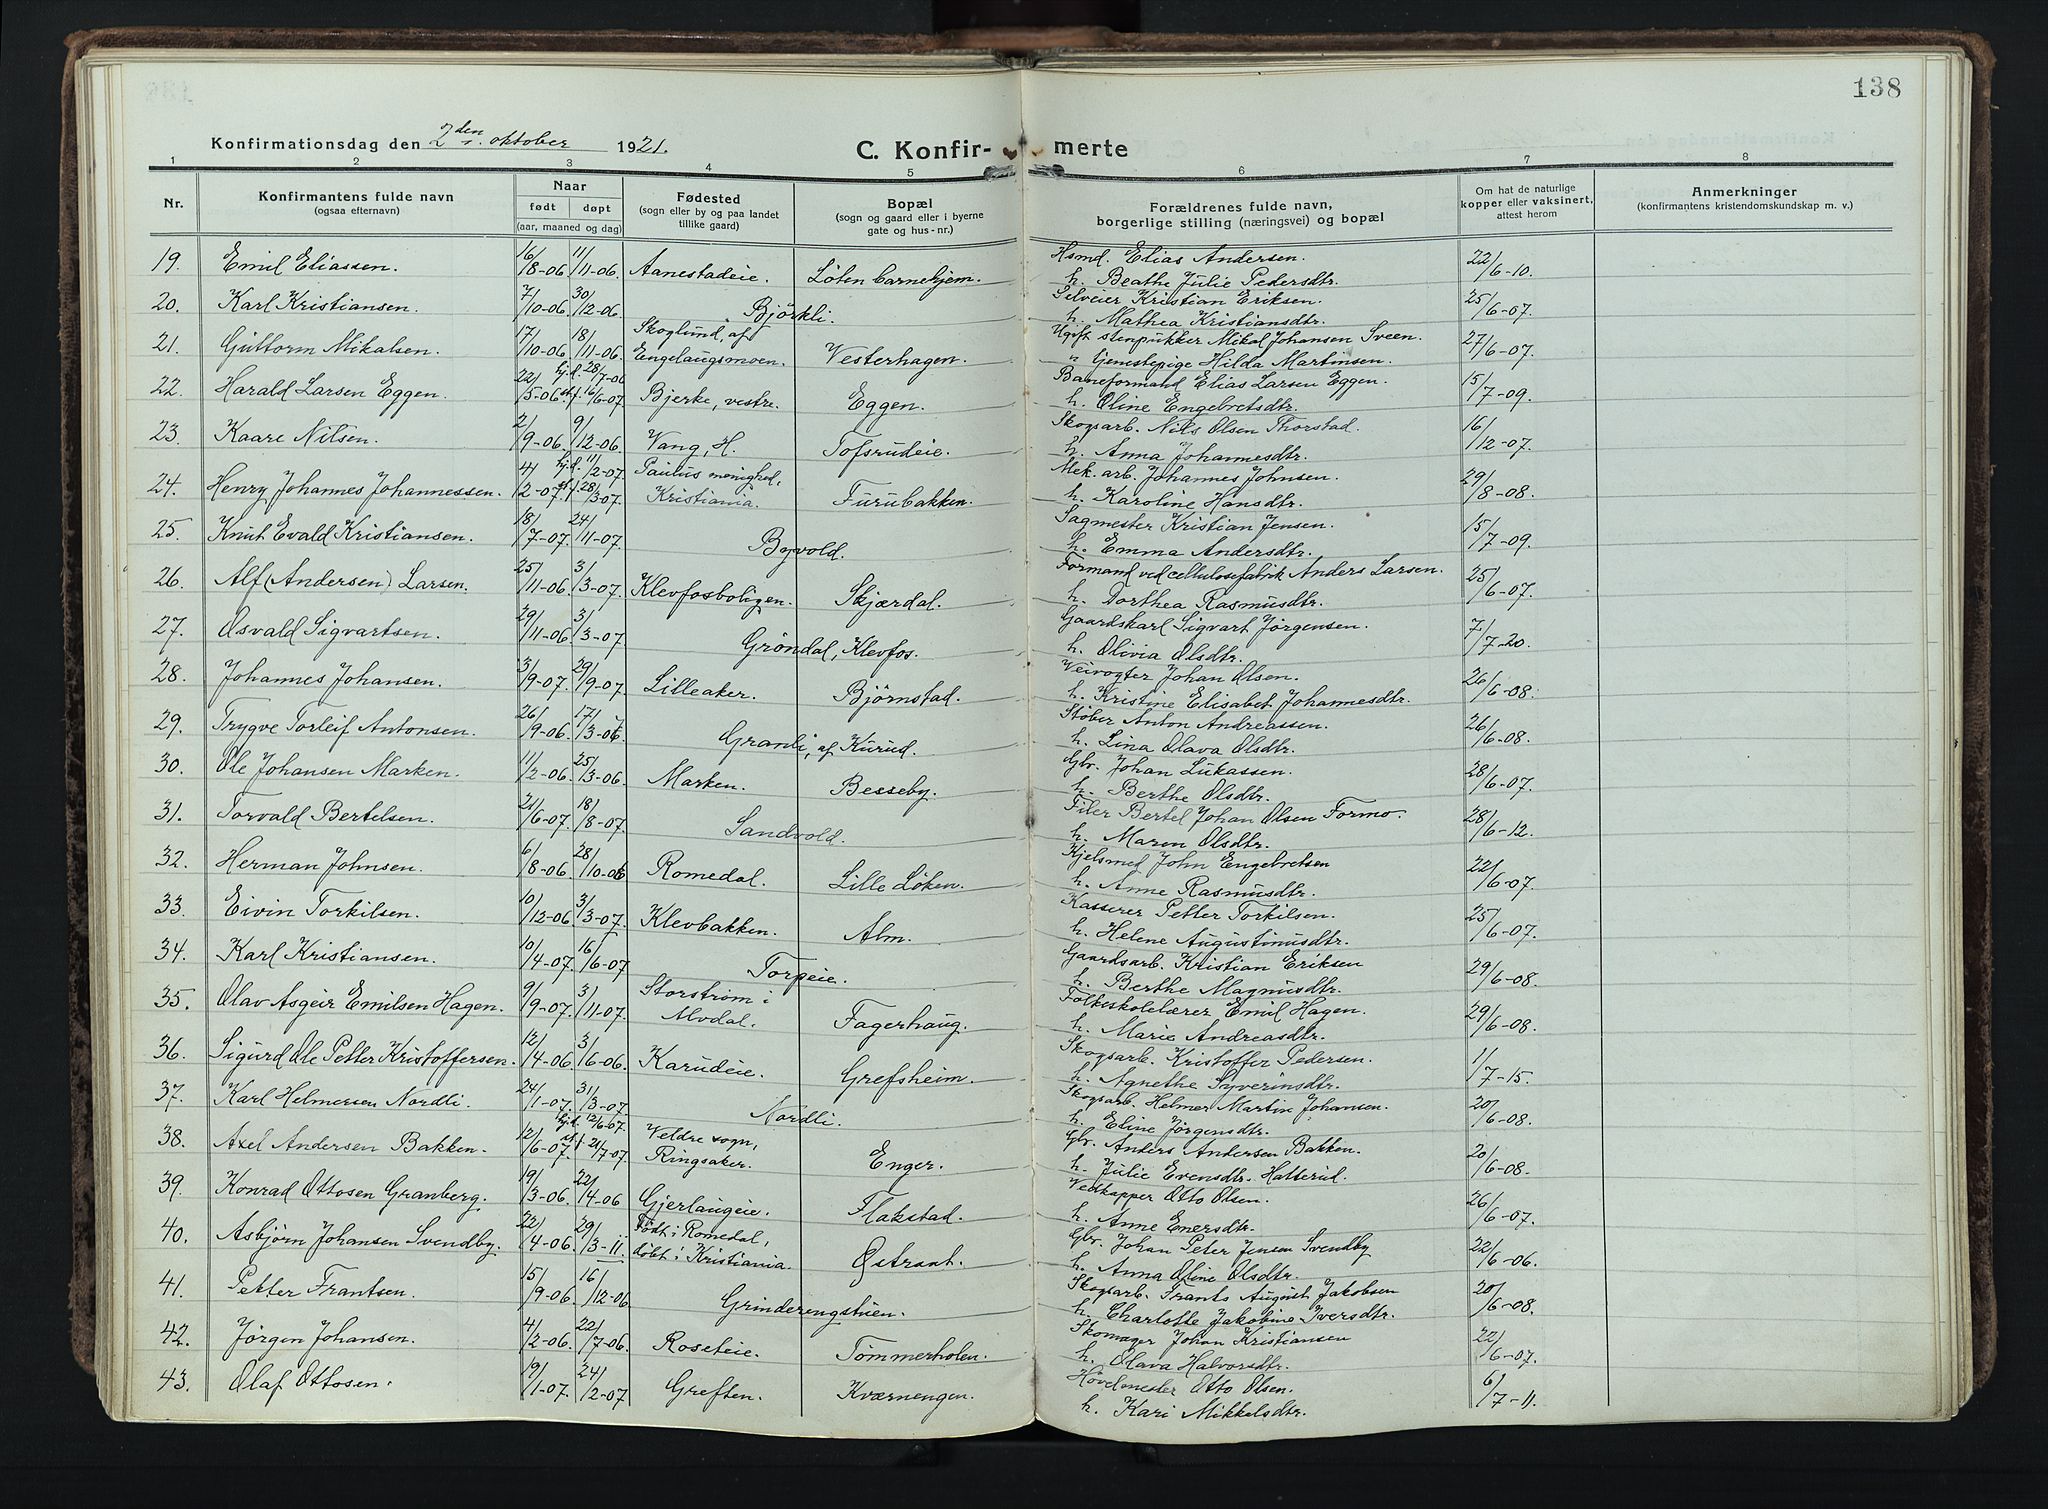 138
Konfirmationsdag den 2den oktober 1921.
C. Konfirmerte
1 2 3 4 5 6 7 8
Nr.
Konfirmantens fulde navn
(ogsaa efternavn)
Naar
født døpt
(aar, maaned og dag)
Fødested
(sogn eller by og paa landet
tillike gaard)
Bopæl
(sogn og gaard eller i byerne
gate og hus-nr.)
Forældrenes fulde navn,
borgerlige stilling (næringsvei) og bopæl
Om hat de naturlige
kopper eller vaksinert,
attest herom
Anmerkninger
(konfirmantens kristendomskundskap m. v.)
19. Emil Eliassen. 16/8-06 11/11-06. Aanestadeie. Løten barnehjem. Hsmd. Elias Andersen. 22/6-10.
h. Beathe Julie Pedersdtr.
20. Karl Kristiansen. 7/10-06 30/12-06. Bjørkli. Selveier Kristian Eriksen. 25/6-07.
h. Mathea Kristiansdtr.
21. Guttorm Mikalsen. 17/10-06 18/11-06. Skoglund, af Engelaugsmoen. Vesterhagen. Ugift stenpukker Mikal Johansen Sveen. 27/6-07.
" tjenestepige Hilda Martinsen.
22. Harald Larsen Eggen. 22/5-06. hj.d. 28/7-06 st.f. 16/6-07. Bjerke, vestre. Eggen. Baneformand Elias Larsen Eggen. 15/7-09.
h. Oline Engebretsdtr.
23. Kaare Nilsen. 2/9-06. 9/12-06. Vang, H. Tofsrudeie. Skogsarb. Nils Olsen Thorstad. 16/12-07.
h. Anna Johannesdtr.
24. Henry Johannes Johannessen. 4/2-07. hj.d. 11/2-07. st.f. 28/3-07. Paulus menighed, Kristiania. Furubakken. Mek. arb. Johannes Johnsen. 29/8-08.
h. Karoline Hansdtr.
25. Knut Evald Kristiansen. 18/7-07. 24/11-07. Byvold. Sagmester Kristian Jensen. 15/7-09.
h. Emma Andersdtr.
26. Alf (Andersen) Larsen. 25/11-06 3/3-07. Klevfosboligen. Skjærdal. Formand ved cellulosefabrik Anders Larsen. 25/6-07.
h. Dorthea Rasmusdtr.
27. Osvald Sigvartsen. 29/11-06 3/3-07. Grøndal, Klevfos. Gaardskarl Sigvart Jørgensen. 7/7-20.
h. Olivia Olsdtr.
28. Johannes Johansen. 3/9-07. 29/9-07. Lilleaker. Bjørnstad. Veivogter Johan Olsen. 26/6-08.
h. Kristine Elisabet Johannesdtr.
29. Trygve Torleif Antonsen. 26/9-06. 17/3-06 Granli, af Kurud. Støber Anton Andreassen. 26/6-08.
h. Lina Olava Olsdtr.
30. Ole Johansen Marken. 11/2-06. 25/3-06. Marken. Besseby. Gbr. Johan Lukassen. 28/6-07.
h. Berthe Olsdtr.
31. Torvald Bertelsen. 21/6-07. 18/8-07. Sandvold. Filer Bertel Johan Olsen Formo. 28/6-12.
h. Maren Olsdtr.
32. Herman Johnsen. 6/8-06. 28/10-06 Romedal. Lille Løken. Kjelsmed John Engebretsen 22/6-07.
h. Anne Rasmusdtr.
33. Eivin Torkilsen. 10/12-06 3/3-07. Klevbakken. Alm. Kasserer Petter Torkilsen. 25/6-07.
h. Helene Augustinusdtr.
34. Karl Kristiansen. 10/4-07. 16/6-07 Torpeie. Gaardsarb. Kristian Eriksen 29/6-08.
h. Berthe Magnusdtr.
35. Olav Asgeir Emilsen Hagen. 9/9-07. 3/11-07. Storstrøm i Alvdal. Fagerhaug. Folkeskolelærer Emil Hagen. 29/6-08.
h. Marie Andreasdtr.
36. Sigurd Ole Petter Kristoffersen. 12/4-06 3/6-06. Karudeie. Grefsheim. Skogsarb. Kristoffer Pedersen. 1/7-15.
h. Agnethe Syverinsdtr.
37. Karl Helmersen Nordli. 24/1-07. 31/3-07 Nordli. Skogsarb. Helmer Martin Johansen. 20/6-08.
h. Eline Jørgensdtr.
38. Axel Andersen Bakken. 12/6-07. hj.d. 12/6-07. st.f. 21/7-07. Veldre sogn, Ringsaker. Enger. Gbr. Anders Andersen Bakken. 20/6-08.
h. Julie Evensdtr. Hatterud.
39. Konrad Ottosen Granberg. 19/3-06. 22/4-06 Gjerlaugeie. Flakstad. Vedkapper Otto Olsen. 26/6-07.
h. Anne Enersdtr.
40. Asbjørn Johansen Svendby. 22/4-06. 29/3-11. Født i Romedal, døbt i Kristiania. Østrant. Gbr. Johan Peter Jensen Svendby 22/6-06.
h. Anna Oline Olsdtr.
41. Petter Frantsen. 15/9-06 16/12-06 Grinderengstuen. Skogsarb. Frants August Jakobsen 20/6-08.
h. Charlotte Jakobine Iversdtr.
42. Jørgen Johansen. 4/2-06. 22/7-06. Roseteie. Tømmerholen. Skomager Johan Kristiansen 22/6-07.
h. Olava Halvorsdtr.
43. Olaf Ottosen. 19/1-07. 24/2-07 Greften. Kværnengen. Høvelmester Otto Olsen. 6/7-11.
h. Kari Mikkelsdtr.